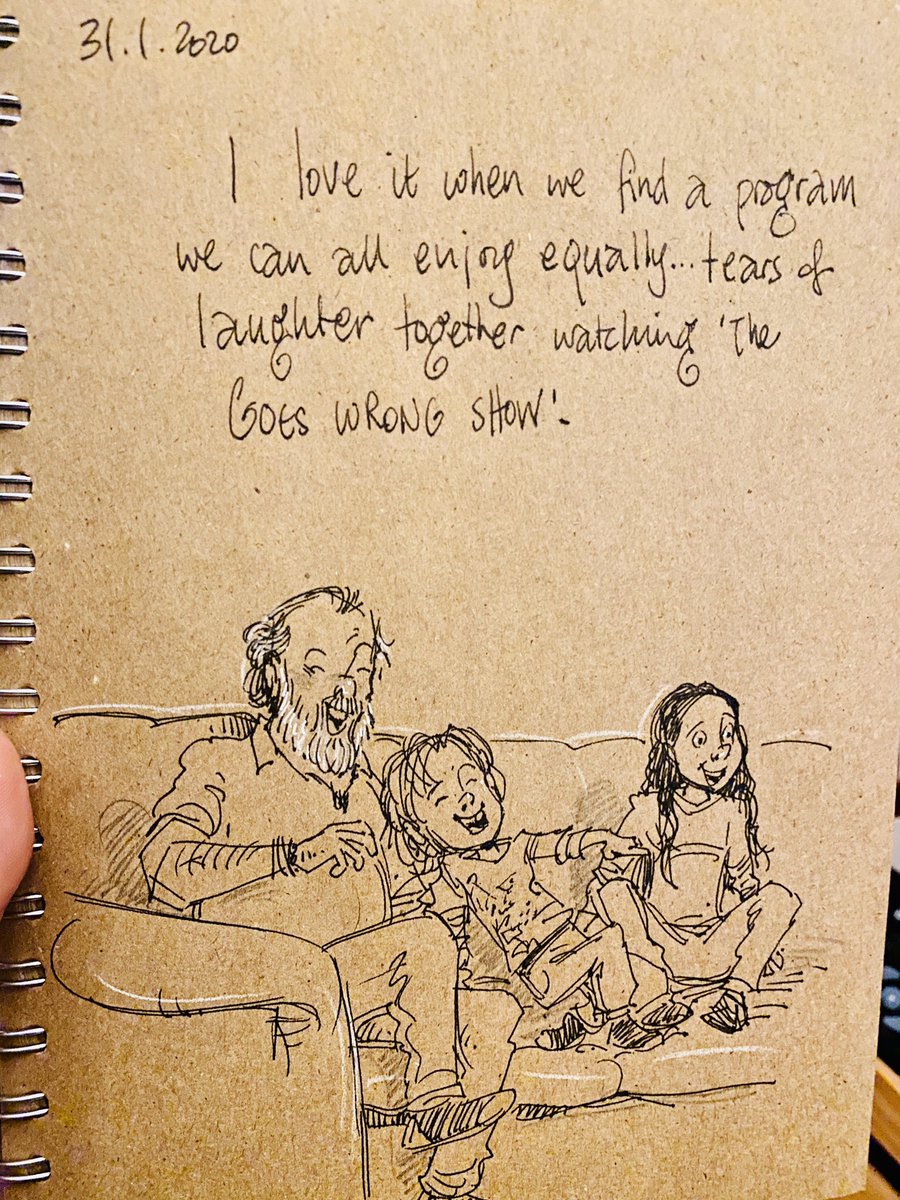 31.1.2020
I love it when we find a program
we can all enjoy equally... tears of
laughter together watching 'The
GOES WRONG SHOW'.